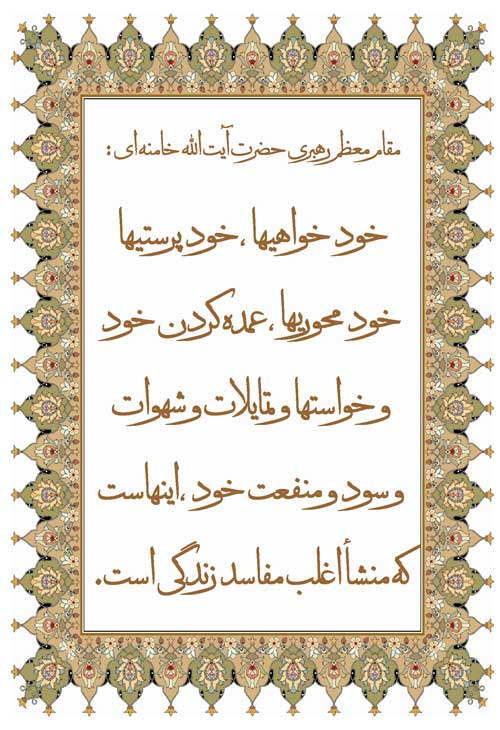 مقام معظم رهبری حضرت آیت الله خامنه ای :
خود خواهیها ، خود پرستیها
خود محوریها ، عمده کردن خود
و خواستها و تمایلات و شهوات
و سود و منفعت خود ، اینهاست
که منشأ اغلب مفاسد زندگی است.